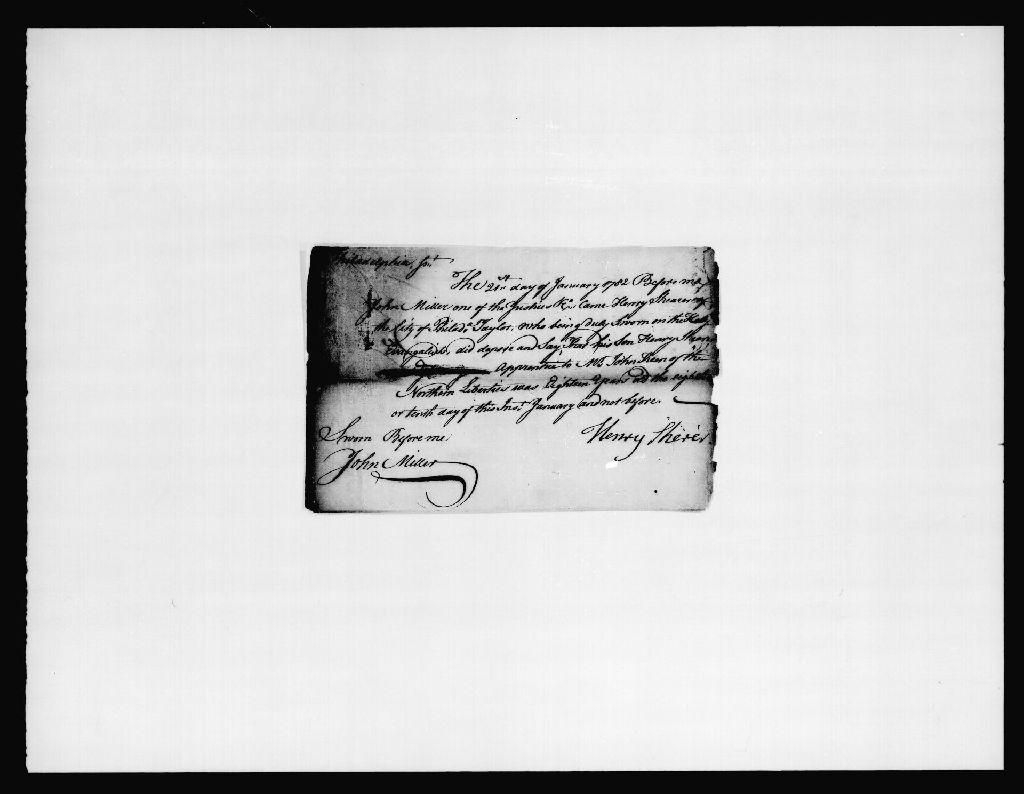 Philadelphia, Ss.
The 21st day of January 1782 Before me
John Miller one of the Justices &c. Came Henry Shearer of
the City of Philada. Taylor, who being duly Sworn on the Holy
Evangelists, did depose and Say, That his Son Henry Shearer
Apprentice to Mr. John Keen of the
Northern Liberties was Eighteen Years old the eighth
or tenth day of this Inst. January and not before.
Sworn Before me
Henry Sherer
John Miller